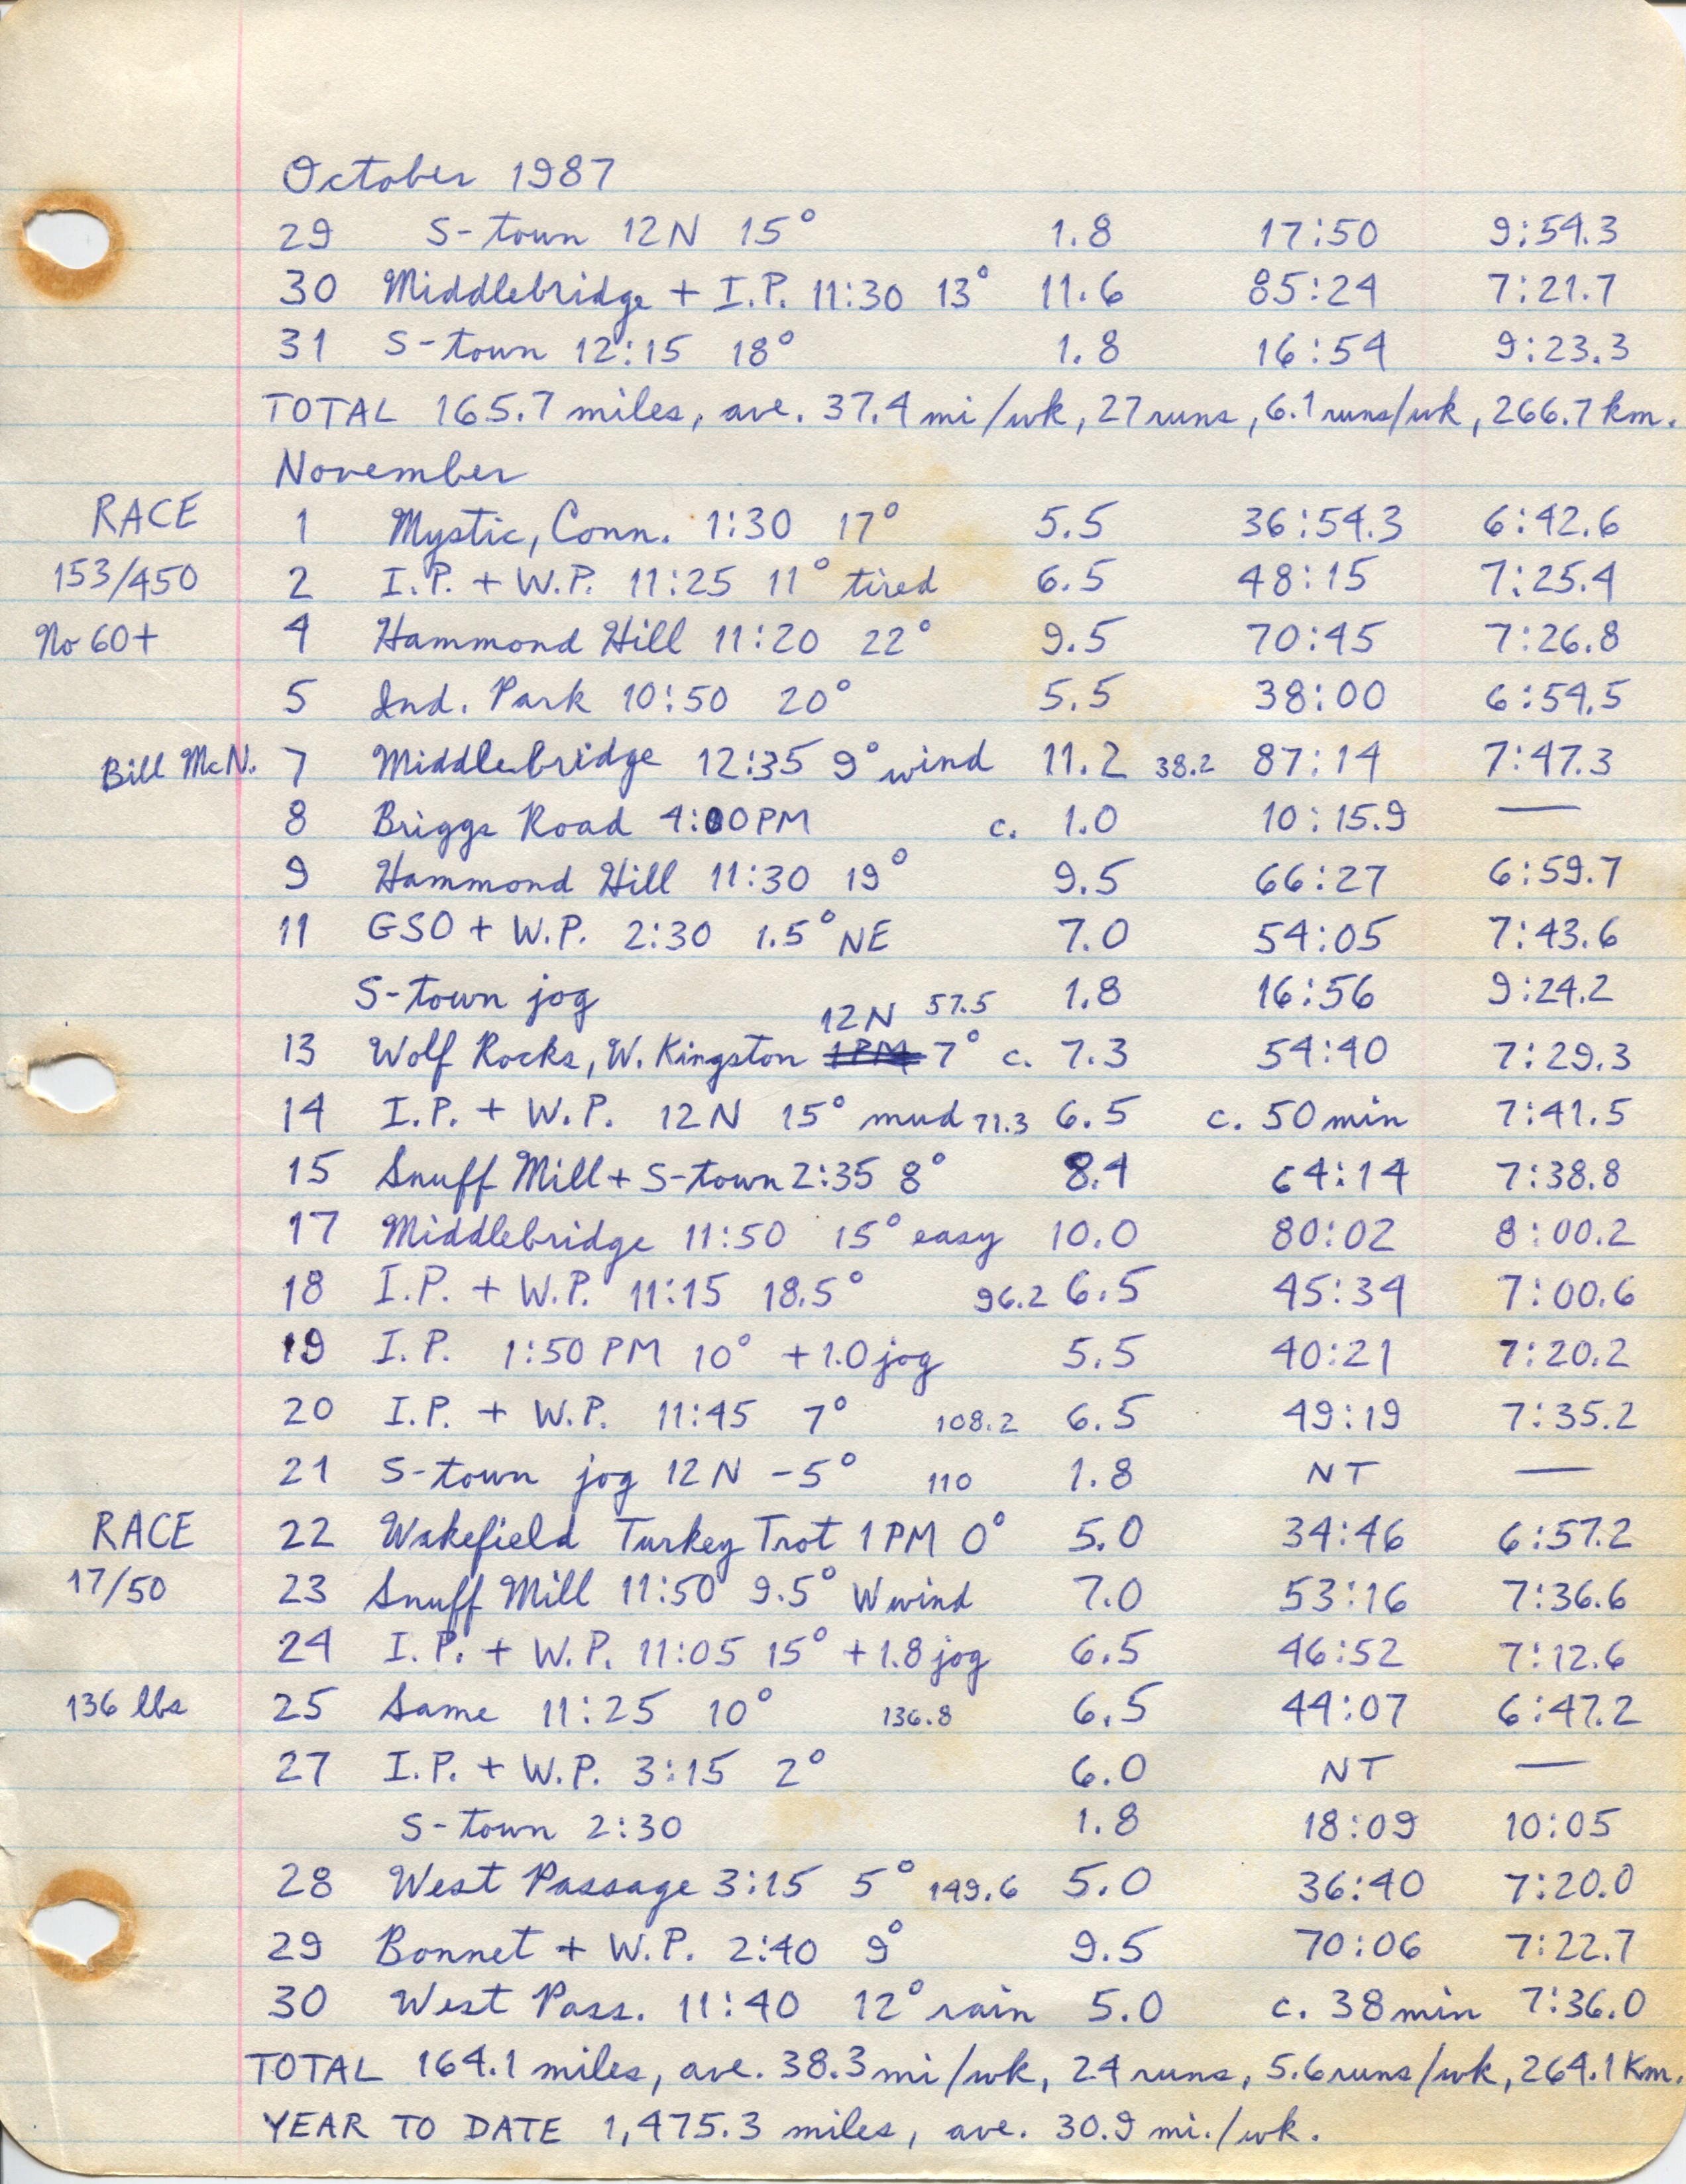 October 1987
29 S-town 12N 15° 1.8 17:50 9:54.3
30 Middlebridge + I.P. 11:30 13° 11.6 85:24 7:21.7
31 S-town 12:15 18° 1.8 16:54 9:23.3
TOTAL 165.7 miles, ave. 37.4 mi/wk, 27 runs, 6.1 runs/wk, 266.7 km.
November
RACE 1 Mystic, Conn. 1:30 17° 5.5 36:54.3 6:42.6
153/450 2 I.P. + W.P. 11:25 11° tired 6.5 48:15 7:25.4
No 60+ 4 Hammond Hill 11:20 22° 9.5 70:45 7:26.8
5 Ind. Park 10:50 20° 5.5 38:00 6:54.5
Bill McN. 7 Middlebridge 12:35 9° wind 11.2 38.2 87:14 7:47.3
8 Briggs Road 4:00 PM c. 1.0 10:15.9 —
9 Hammond Hill 11:30 19° 9.5 66:27 6:59.7
11 GSO + W.P. 2:30 1.5° NE 7.0 54:05 7:43.6
S-town jog 1.8 16:56 9:24.2
12N 57.5
13 Wolf Rocks, W. Kingston 1PM 7° c. 7.3 54:40 7:29.3
14 I.P. + W.P. 12N 15° mud 71.3 6.5 c. 50 min 7:41.5
15 Snuff Mill + S-town 2:35 8° 8.4 64:14 7:38.8
17 Middlebridge 11:50 15° easy 10.0 80:02 8:00.2
18 I.P. + W.P. 11:15 18.5° 96.2 6.5 45:34 7:00.6
19 I.P. 1:50 PM 10° + 1.0 jog 5.5 40:21 7:20.2
20 I.P. + W.P. 11:45 7° 108.2 6.5 49:19 7:35.2
21 S-town jog 12N -5° 110 1.8 NT —
RACE 22 Wakefield Turkey Trot 1 PM 0° 5.0 34:46 6:57.2
17/50 23 Snuff Mill 11:50 9.5° W wind 7.0 53:16 7:36.6
24 I.P. + W.P. 11:05 15° + 1.8 jog 6.5 46:52 7:12.6
136 lbs 25 Same 11:25 10° 136.8 6.5 44:07 6:47.2
27 I.P. + W.P. 3:15 2° 6.0 NT —
S-town 2:30 1.8 18:09 10:05
28 West Passage 3:15 5° 149.6 5.0 36:40 7:20.0
29 Bonnet + W.P. 2:40 9° 9.5 70:06 7:22.7
30 West Pass. 11:40 12° rain 5.0 c. 38 min 7:36.0
TOTAL 164.1 miles, ave. 38.3 mi/wk, 24 runs, 5.6 runs/wk, 264.1 Km.
YEAR TO DATE 1,475.3 miles, ave. 30.9 mi./wk.